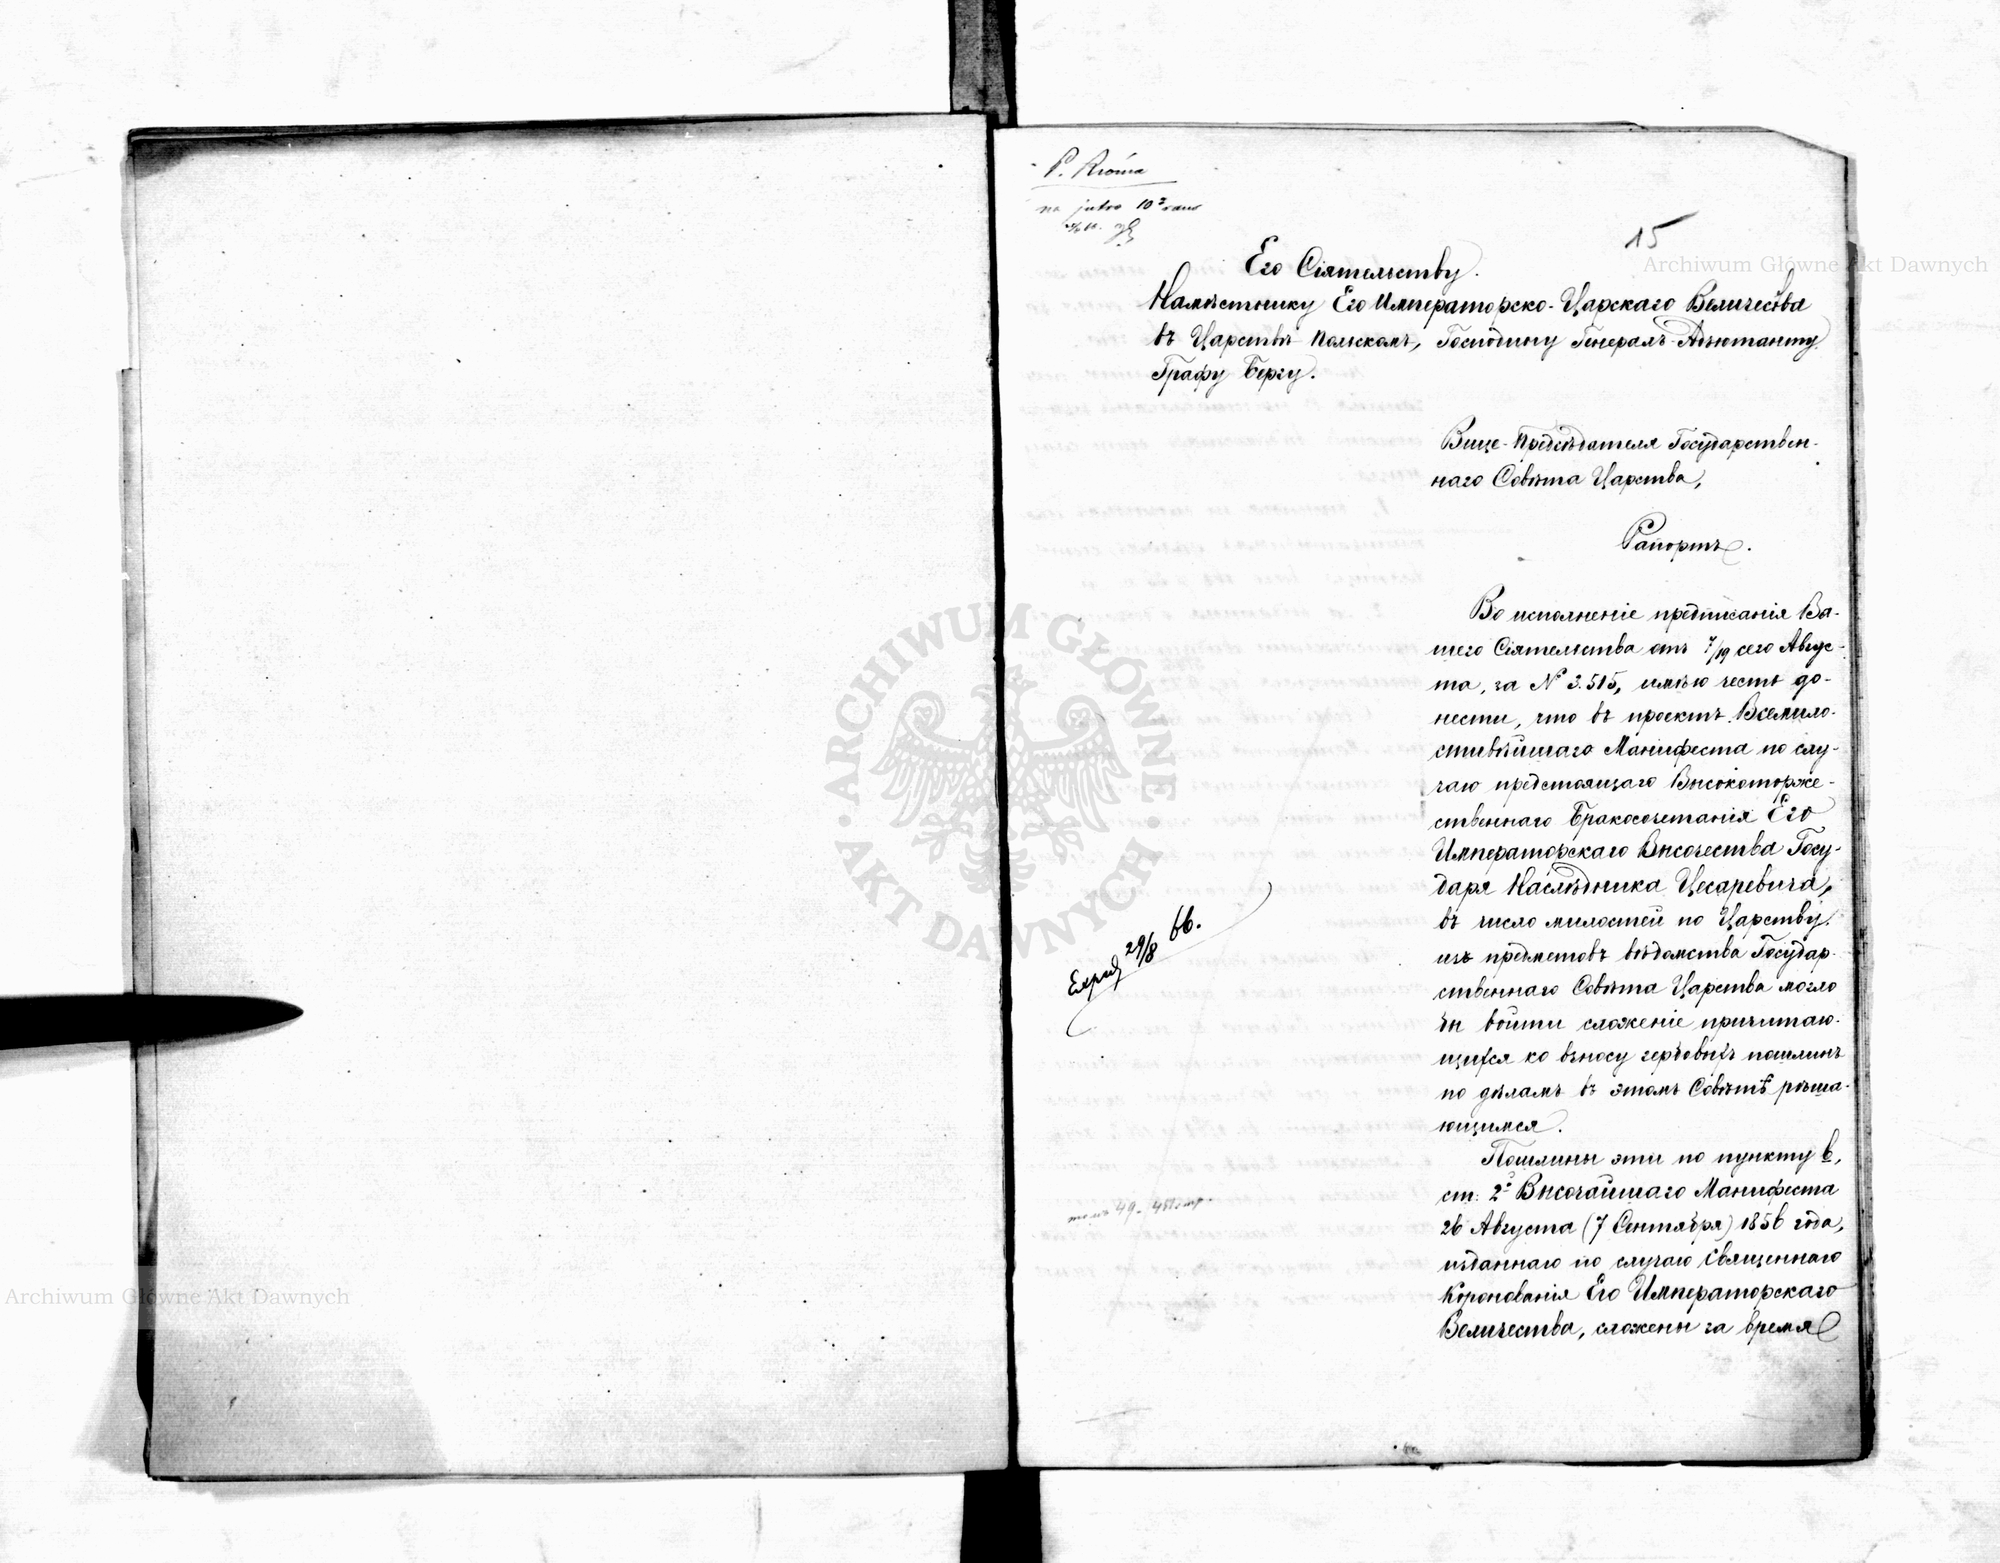 na jutro 10
15
Его Сіятельству
Намѣстнику Его Императорско-Царскаго Величества
въ Царствѣ Польскомъ, Господину Генералъ-Адъютанту
Графу Бергу.
Вице-Предсѣдателя Государствен-
наго Совѣта Царства,
Рапортъ.
Во исполненіе предписанія Ва-
шего Сіятельства отъ 7/19 сего Авгус-
та, за № 3.515, имѣю честь до-
нести, что въ проектъ Всемило-
стивѣйшаго Манифеста по слу-
чаю предстоящаго Высокоторже-
ственнаго Бракосочетанія Его
Императорскаго Высочества Госу-
даря Наслѣдника Цесаревича,
въ число милостей по Царству,
изъ предметовъ вѣдомства Государ-
ственнаго Совѣта Царства могло
бы войти сложеніе причитаю-
щихся ко взносу гербовыхъ пошлинъ
по дѣламъ въ этомъ Совѣтѣ рѣша-
ющимся.
Пошлины эти по пункту в,
ст. 2й Высочайшаго Манифеста
26 Августа (7 Сентября) 1856 года,
изданнаго по случаю Священнаго
Коронованія Его Императорскаго
Величества, сложены за время
29/8 66.
томъ 49. 451 стр.
ARCHIWUM GŁÓWNE AKT DAWNYCH
Archiwum Główne Akt Dawnych
Archiwum Główne Akt Dawnych